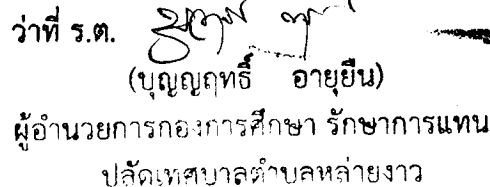 ว่าที่ ร.ต.
(บุญญฤทธิ์ อายุยืน)
ผู้อำนวยการกองการศึกษา รักษาการแทน
ปลัดเทศบาลตำบลหล่ายงาว